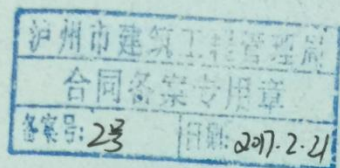 泸州市建筑工程管理局
合同备案专用章
备案号: 23 日期: 2017.2.21